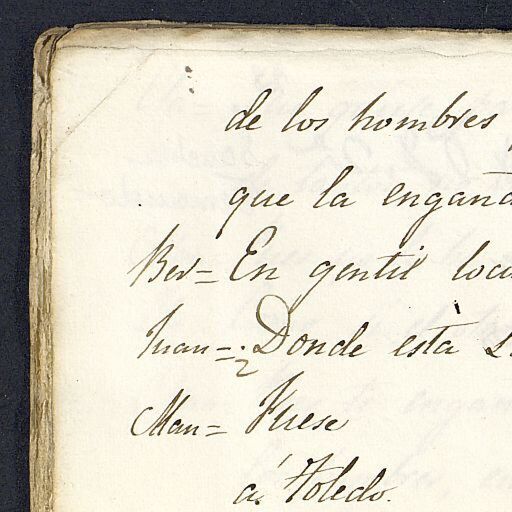 de los hombres
que la engaña
Ber= En gentil locu
Juan= ¿Donde està s
Man= Fuese
a Toledo.